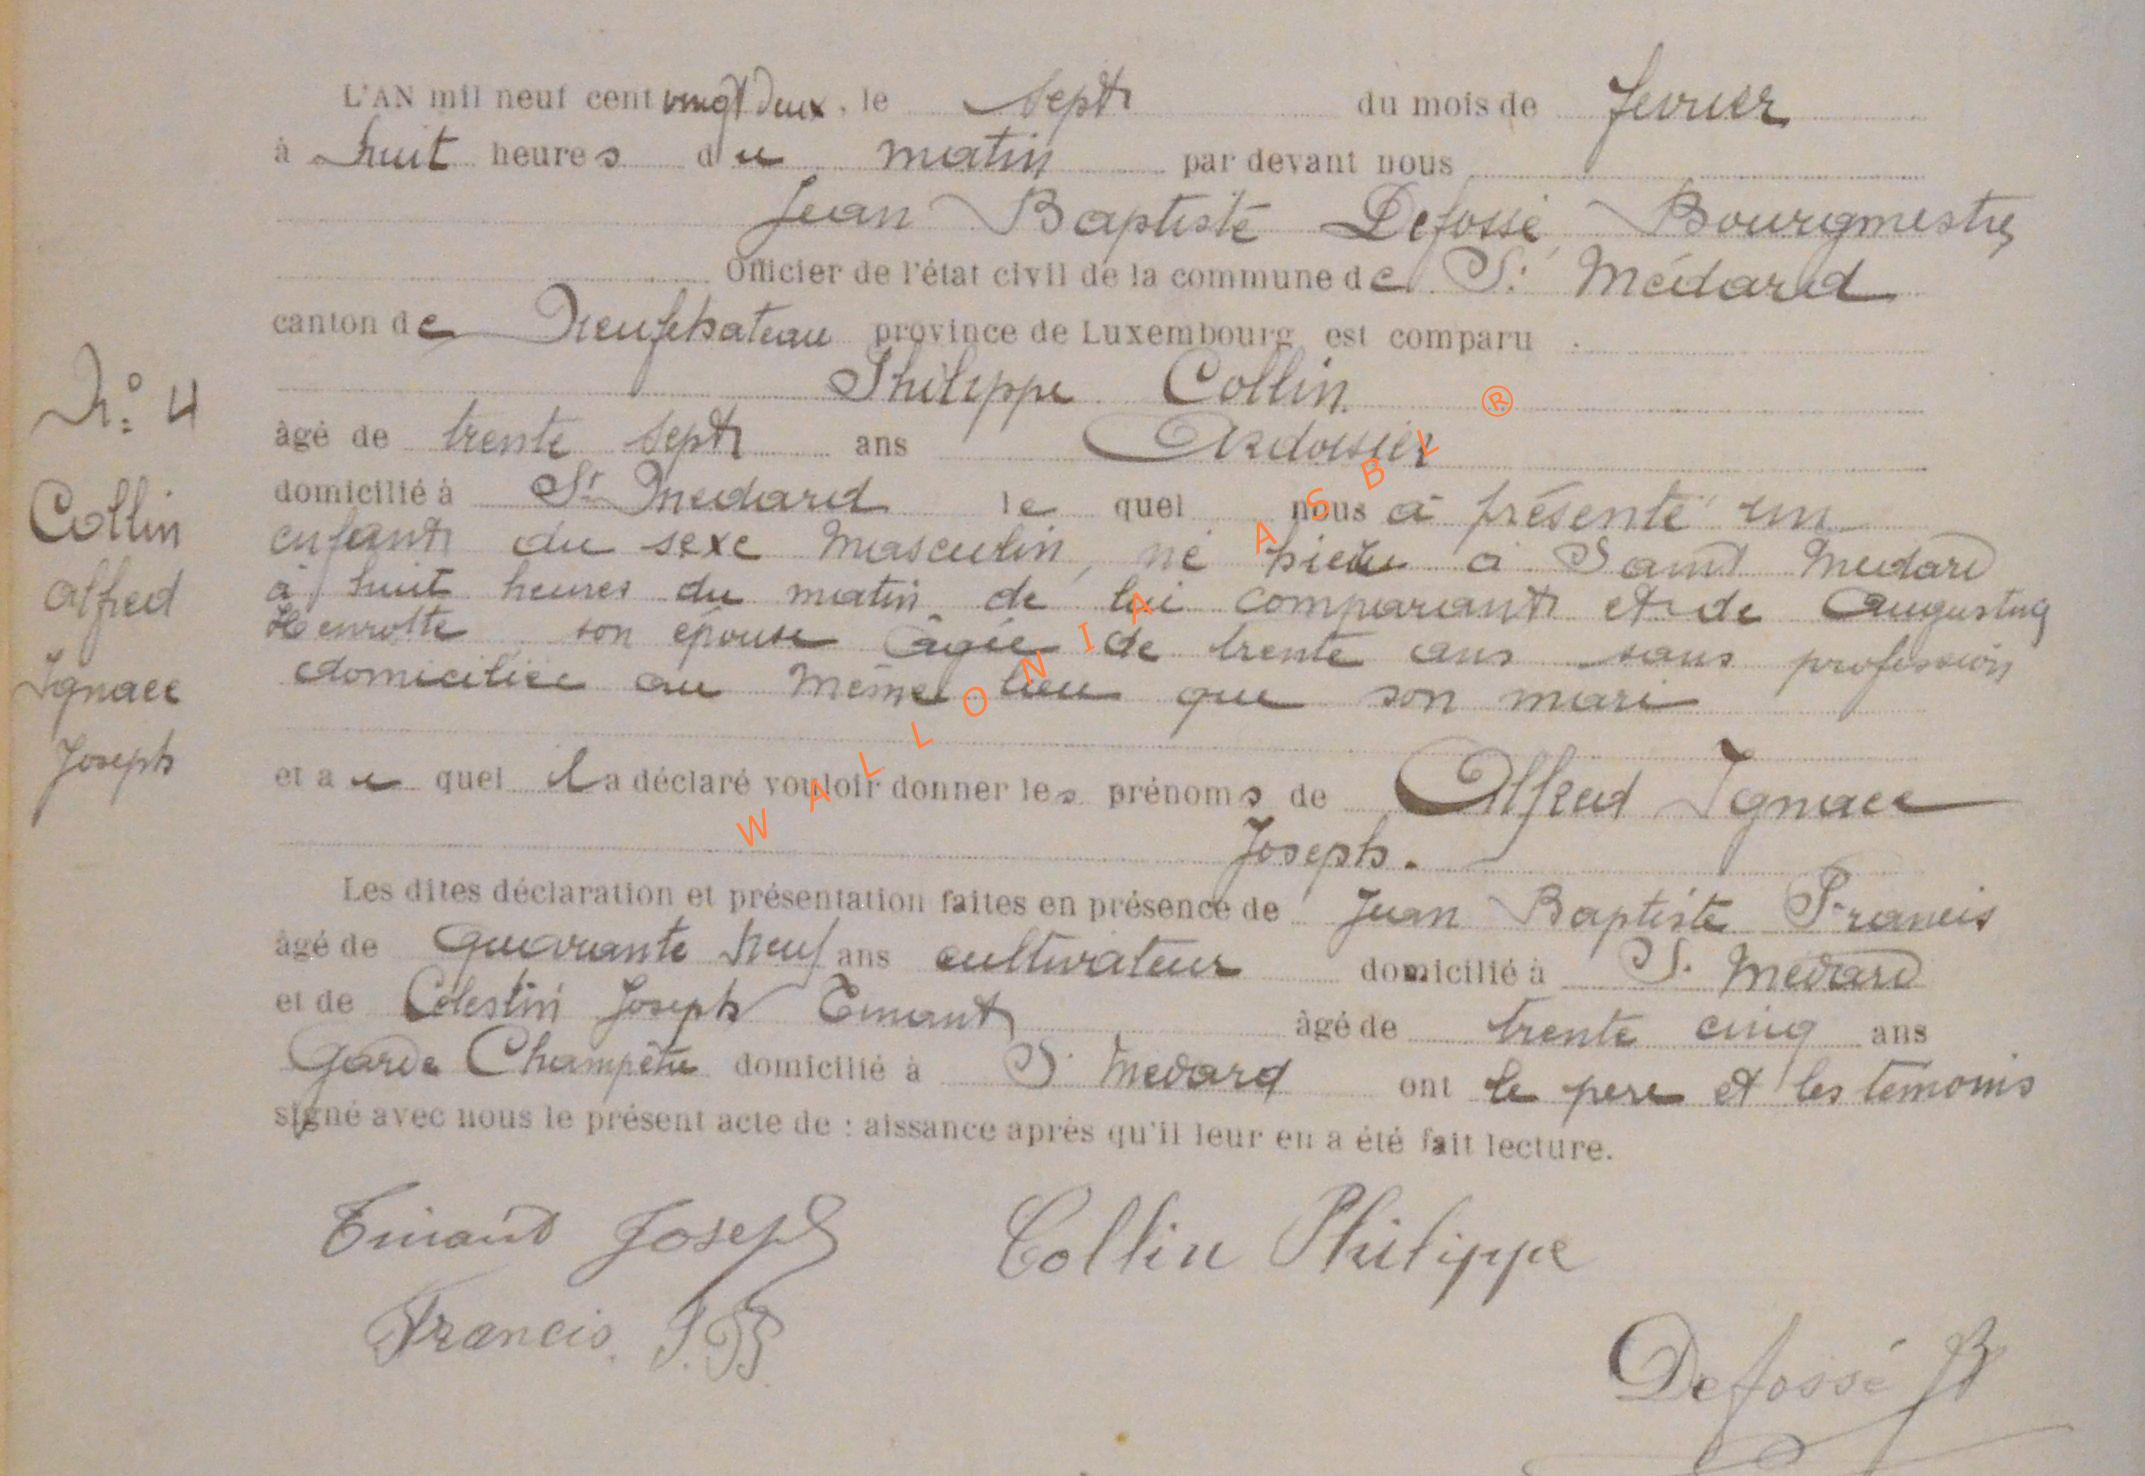 L'AN mil neuf cent vingt deux, le sept du mois de fevrier
à huit heures du matin par devant nous
Jean Baptiste Defossé, Bourgmestre
Officier de l'état civil de la commune de St Médard
canton de Neufchateau province de Luxembourg est comparu
Philippe Collin
N° 4
âgé de trente sept ans Ardoisier
domicilié à St Medard le quel nous a présenté un
Collin
enfant du sexe Masculin, né hier à Saint Medard
à huit heures du matin de lui comparant et de Augustine
Alfred
Henrotte son épouse âgée de trente ans sans profession
Ignace
domiciliée au même lieu que son mari
Joseph
et au quel il a déclaré vouloir donner les prénoms de Alfred Ignace
Joseph.
Les dites déclaration et présentation faites en présence de Jean Baptiste Francis
âgé de quarante neuf ans cultivateur domicilié à St. Medard
et de Célestin Joseph Tinant âgé de trente cinq ans
Garde Champêtre domicilié à St Medard ont le pere et les temoins
signé avec nous le présent acte de : aissance après qu'il leur en a été fait lecture.
Tinant Joseph Collin Philippe
Francis. J. B
Defossé JB
WALLONIA ASBL ®